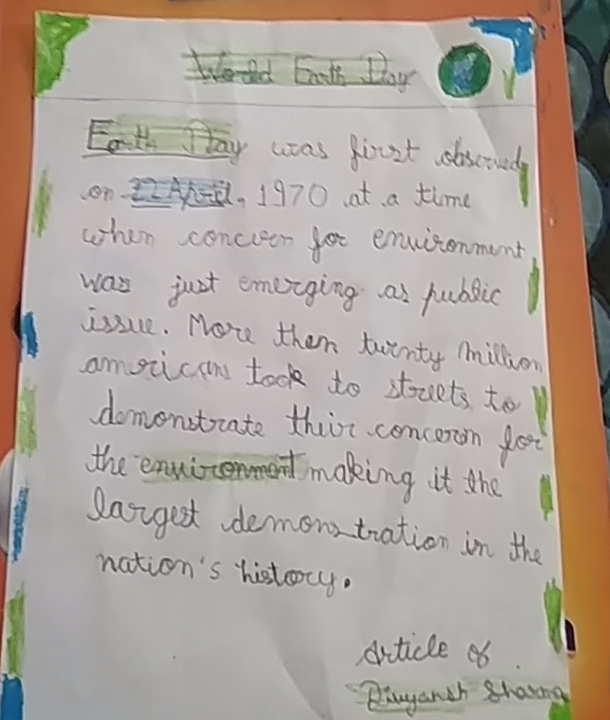 World Earth Day
Earth Day was first observed
on 22 April, 1970 at a time
when concern for environment
was just emerging as public
issue. More then twenty million
americans took to streets to
demonstrate their concern for
the environment making it the
largest demonstration in the
nation's history.
Article of
Divyansh Sharma